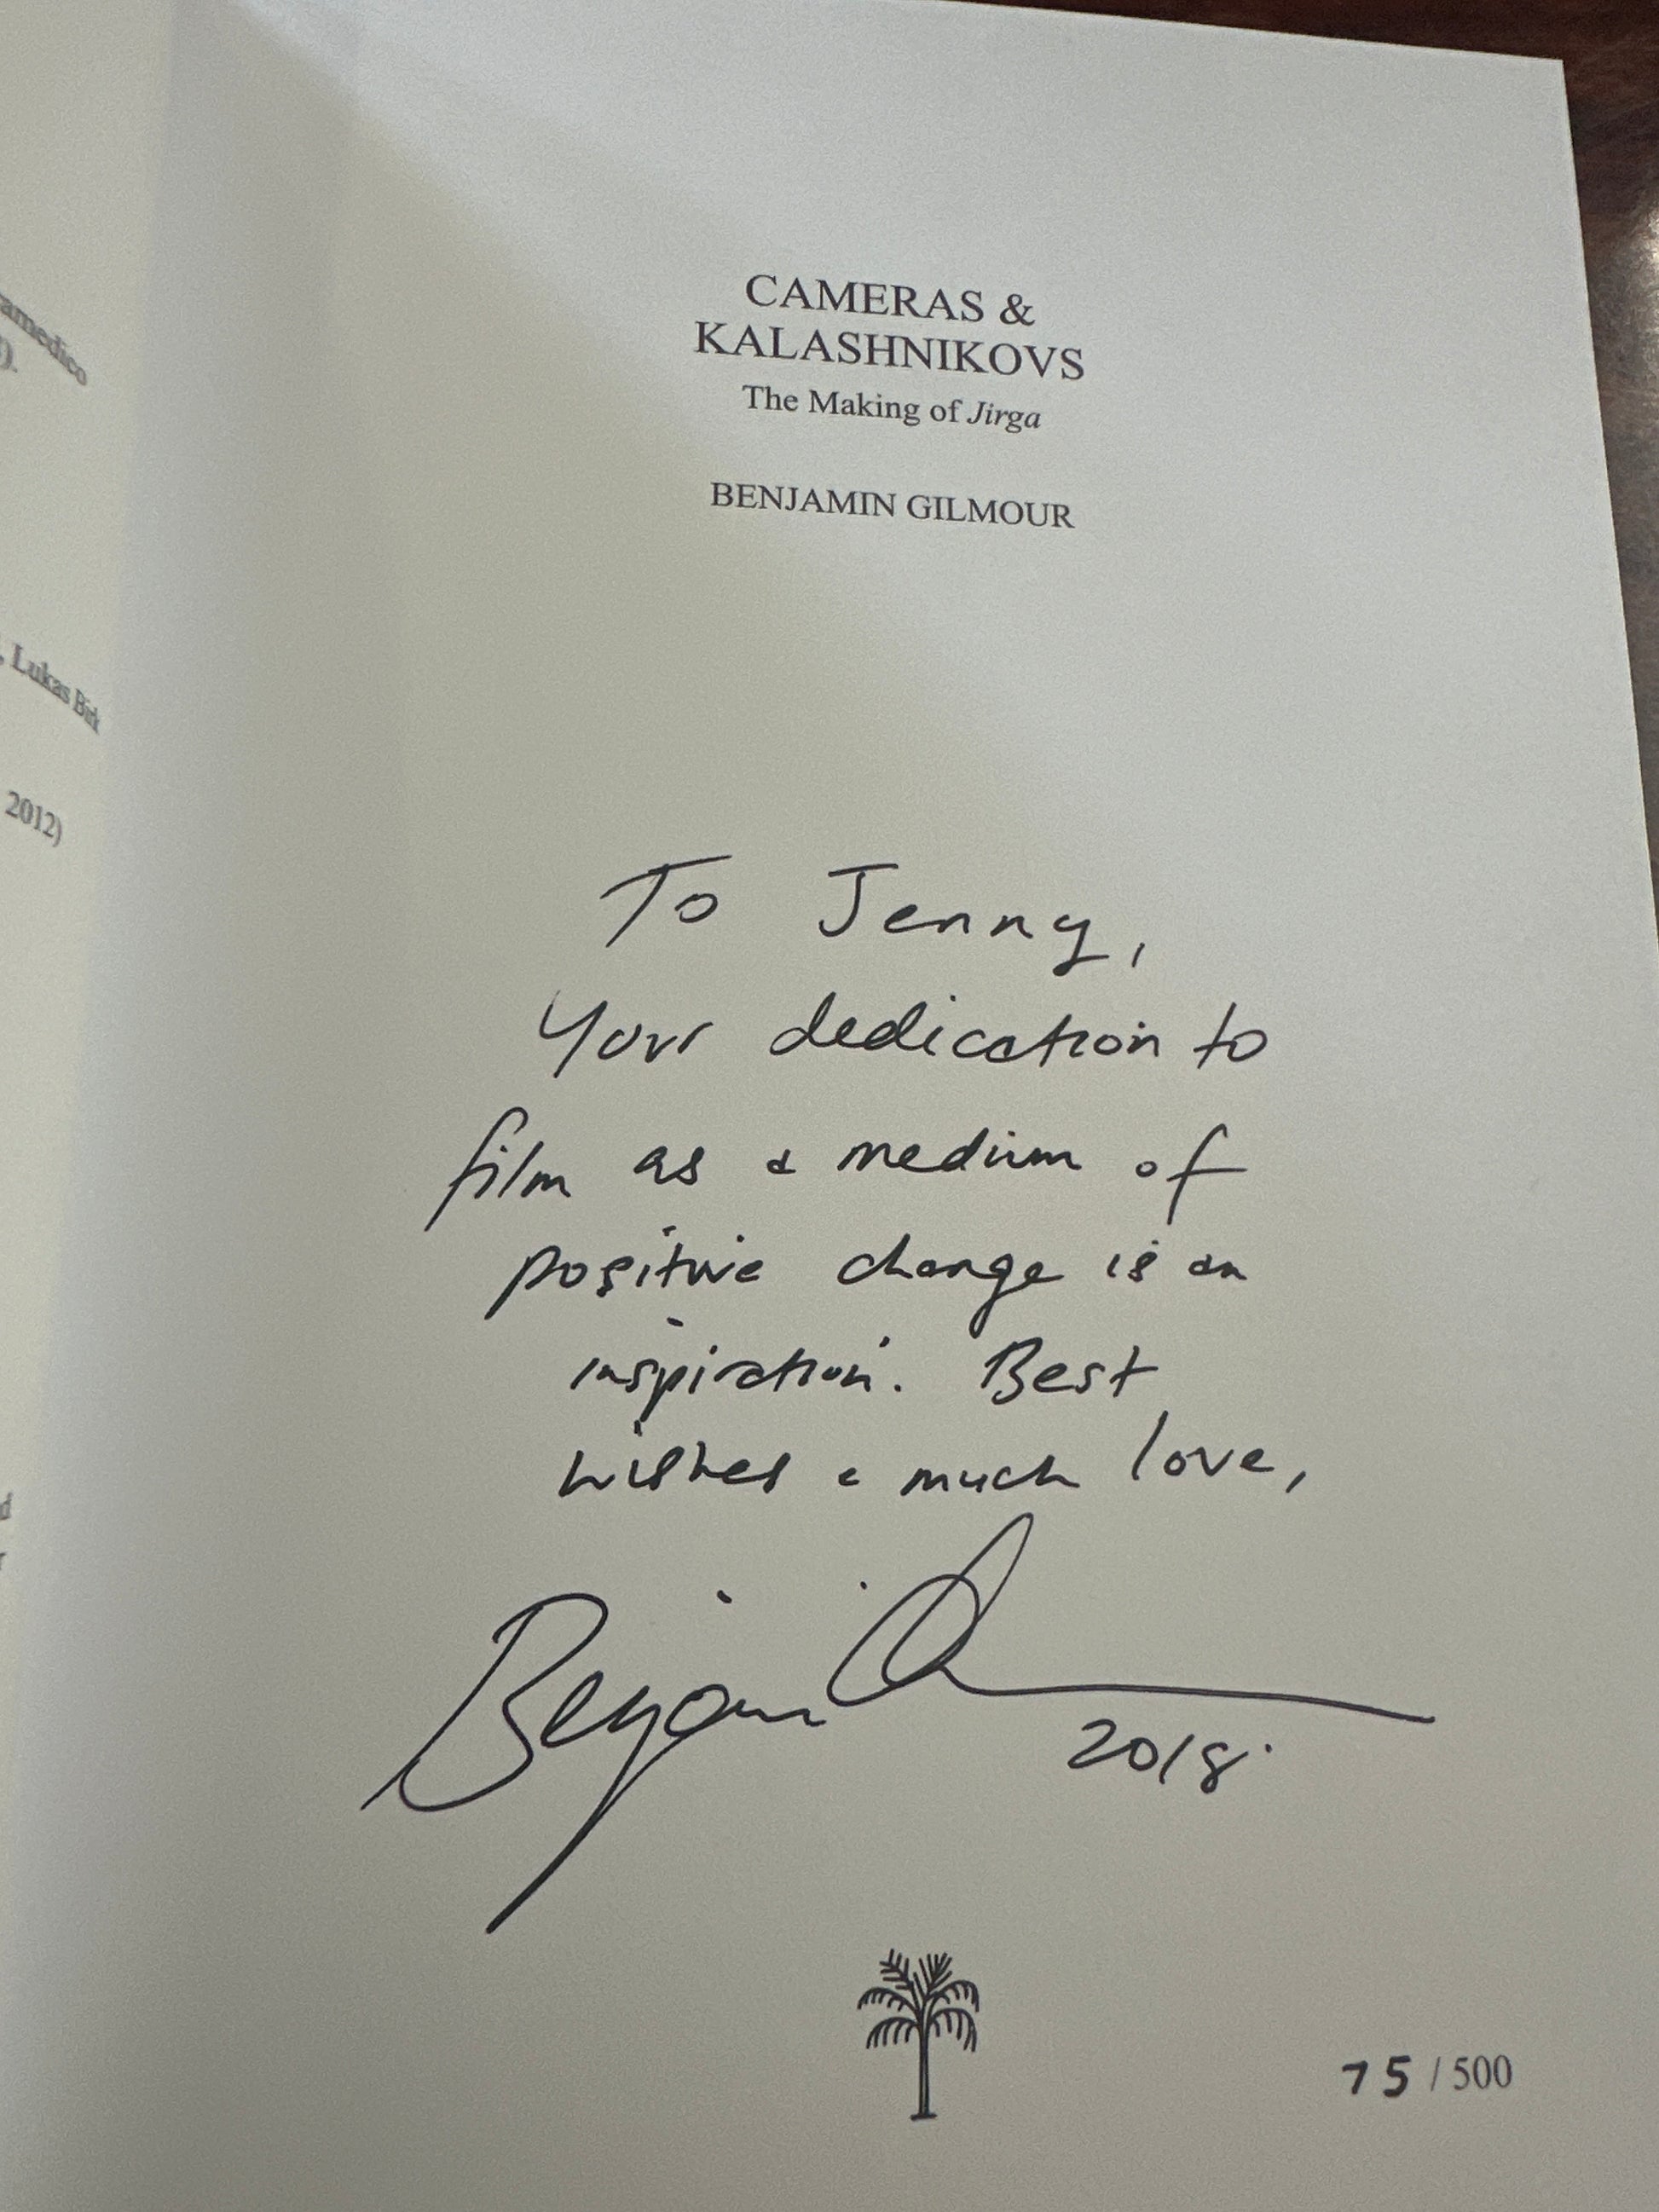 amedico
).
, Lukas Birk
2012)
d
r
CAMERAS &
KALASHNIKOVS
The Making of Jirga
BENJAMIN GILMOUR
To Jenny,
Your dedication to
film as a medium of
positive change is an
inspiration. Best
wishes & much love,
Benjamin
2018.
75 / 500